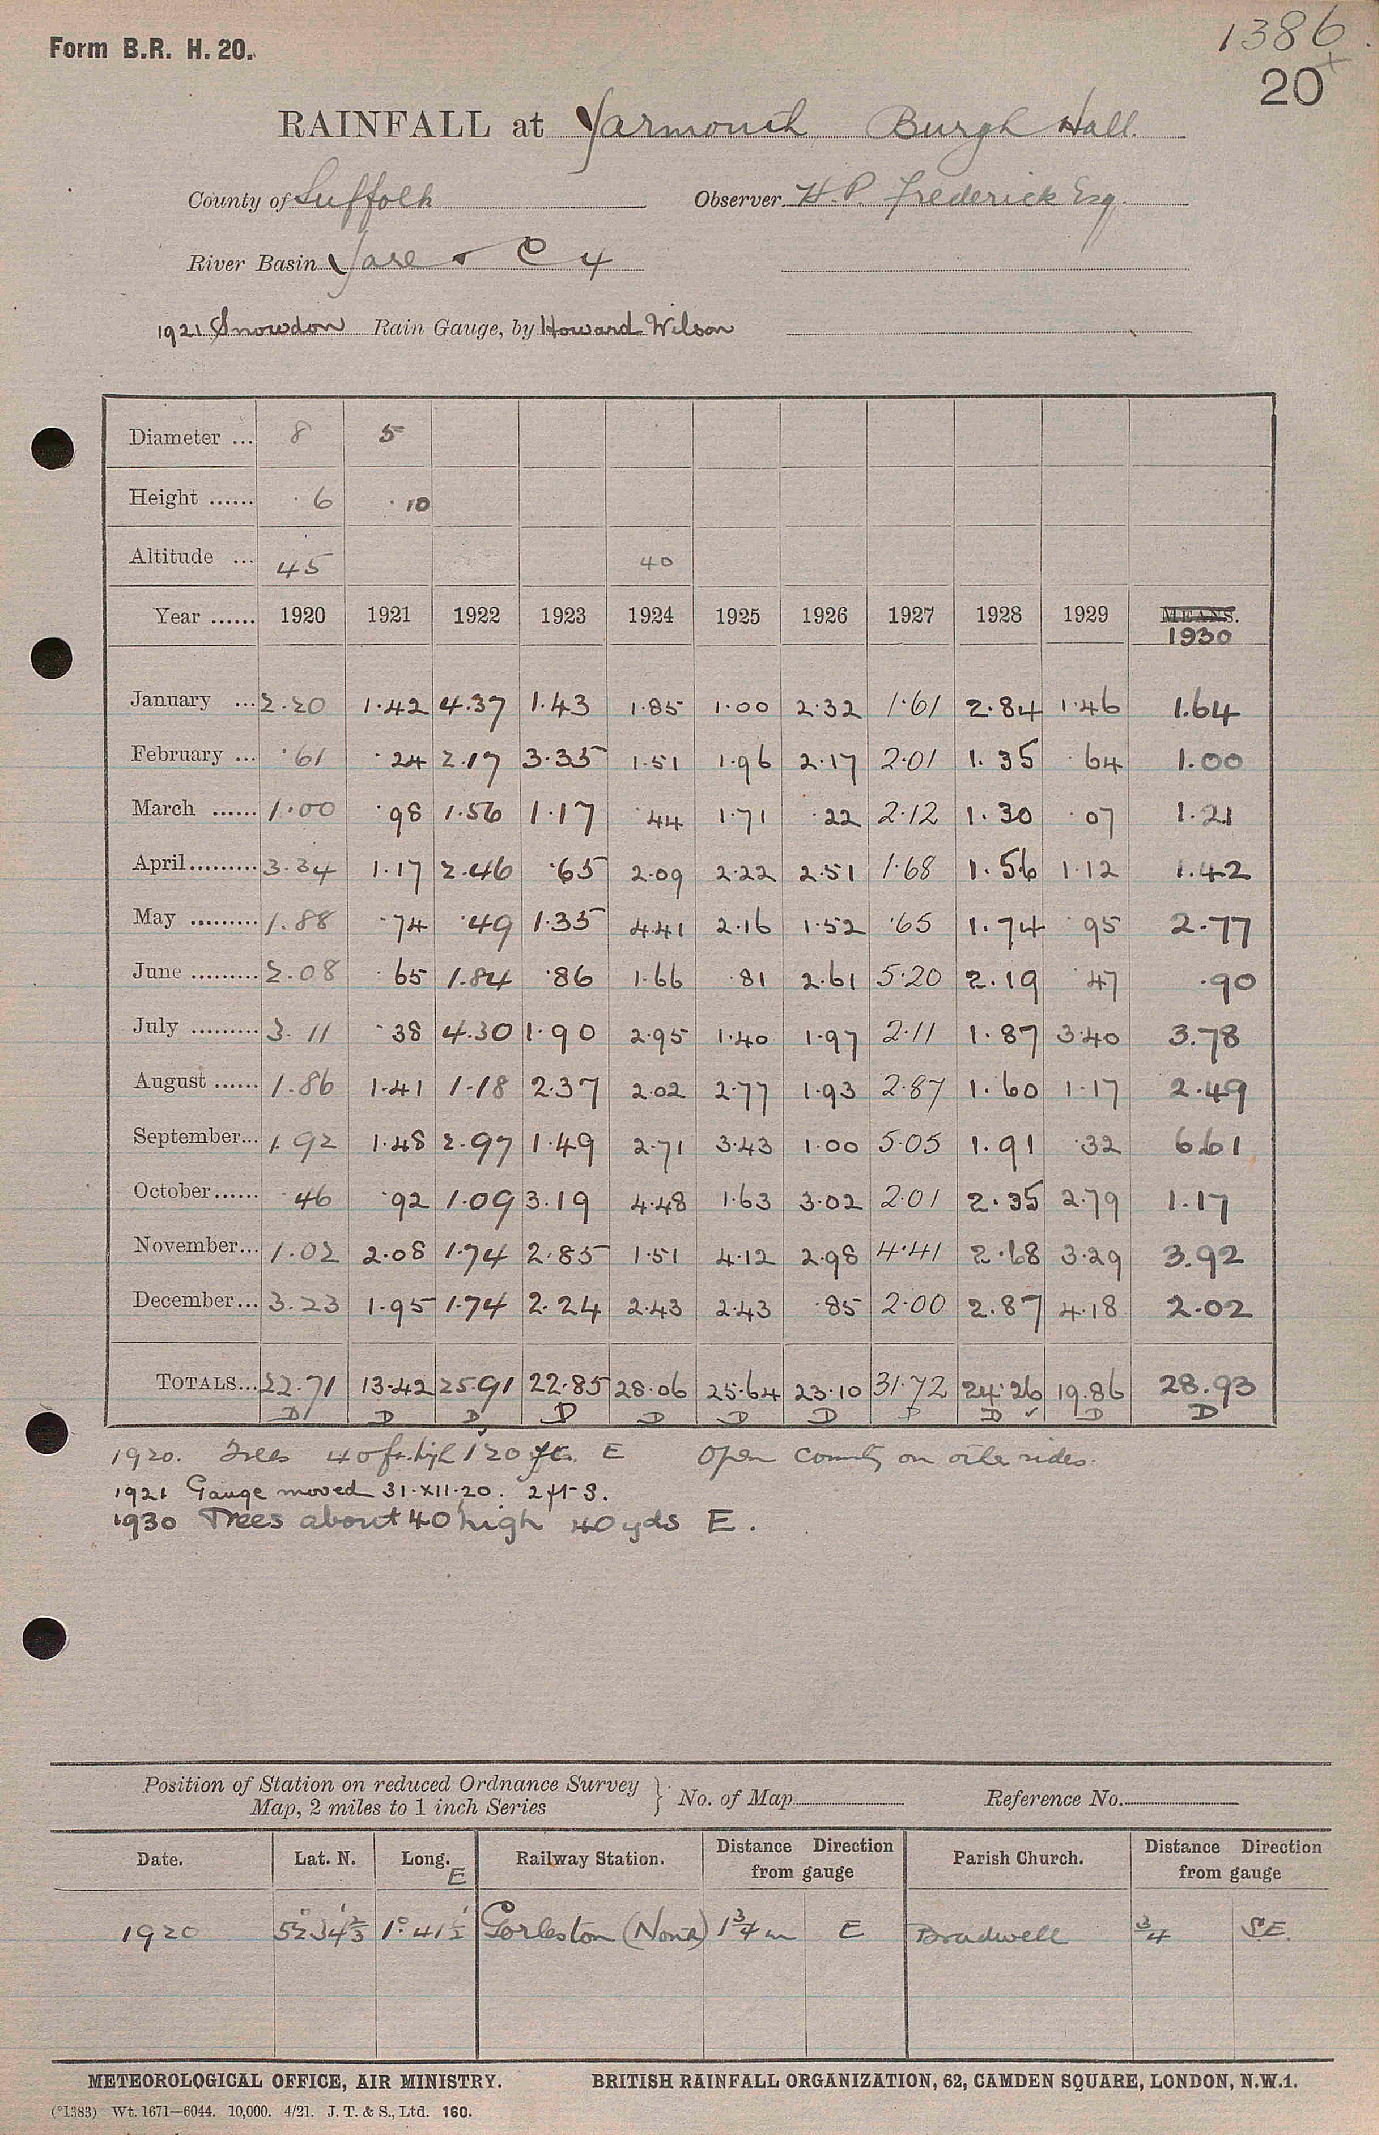 1386
Form B.R. H. 20.
20
RAINFALL at Yarmouth Burgh Hall.
County of Suffolk Observer H. P. Frederick Esq.
River Basin Yare C 4
1921 Snowdon Rain Gauge, by Howard Wilson
Diameter ... 8 5
Height ...... ·6 ·10
Altitude ... 45 40
Year ...... 1920 1921 1922 1923 1924 1925 1926 1927 1928 1929 MEANS. 1930
January ... 2.20 1.42 4.37 1.43 1.85 1.00 2.32 1.61 2.84 1.46 1.64
February ... ·61 ·24 2.17 3.35 1.51 1.96 2.17 2.01 1.35 ·64 1.00
March ...... 1.00 ·98 1.56 1.17 ·44 1.71 ·22 2.12 1.30 ·07 1.21
April......... 3.34 1.17 2.46 ·65 2.09 2.22 2.51 1.68 1.56 1.12 1.42
May ......... 1.88 ·74 ·49 1.35 4.41 2.16 1.52 ·65 1.74 ·95 2.77
June ......... 2.08 ·65 1.84 ·86 1.66 ·81 2.61 5.20 2.19 ·47 ·90
July ......... 3.11 ·38 4.30 1.90 2.95 1.40 1.97 2.11 1.87 3.40 3.78
August ...... 1.86 1.41 1.18 2.37 2.02 2.77 1.93 2.87 1.60 1.17 2.49
September... 1.92 1.48 2.97 1.49 2.71 3.43 1.00 5.05 1.91 ·32 6.61
October...... ·46 ·92 1.09 3.19 4.48 1.63 3.02 2.01 2.35 2.79 1.17
November... 1.02 2.08 1.74 2.85 1.51 4.12 2.98 4.41 2.68 3.29 3.92
December... 3.23 1.95 1.74 2.24 2.43 2.43 ·85 2.00 2.87 4.18 2.02
TOTALS... 22.71 13.42 25.91 22.85 28.06 25.64 23.10 31.72 24.26 19.86 28.93
D D D D D D D D D ✓ D D
1920. Trees 40 ft. high 120 ft. E Open country on other sides.
1921 Gauge moved 31.XII.20. 2 ft S.
1930 Trees about 40' high 40 yds E.
Position of Station on reduced Ordnance Survey Map, 2 miles to 1 inch Series } No. of Map Reference No.
Date. Lat. N. Long. E Railway Station. Distance Direction from gauge Parish Church. Distance Direction from gauge
1920 52° 34⅔' 1° 41½' Gorleston (North) 1¾ m E Bradwell ¾ SE.
METEOROLOGICAL OFFICE, AIR MINISTRY. BRITISH RAINFALL ORGANIZATION, 62, CAMDEN SQUARE, LONDON, N.W.1.
(*1383) Wt. 1671—6044. 10,000. 4/21. J. T. & S., Ltd. 160.